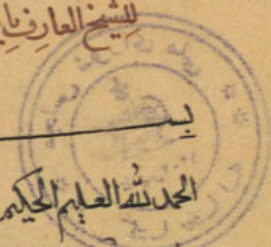 للشيخ العارف با
بسـ
الحمد لله العليم الحكيم